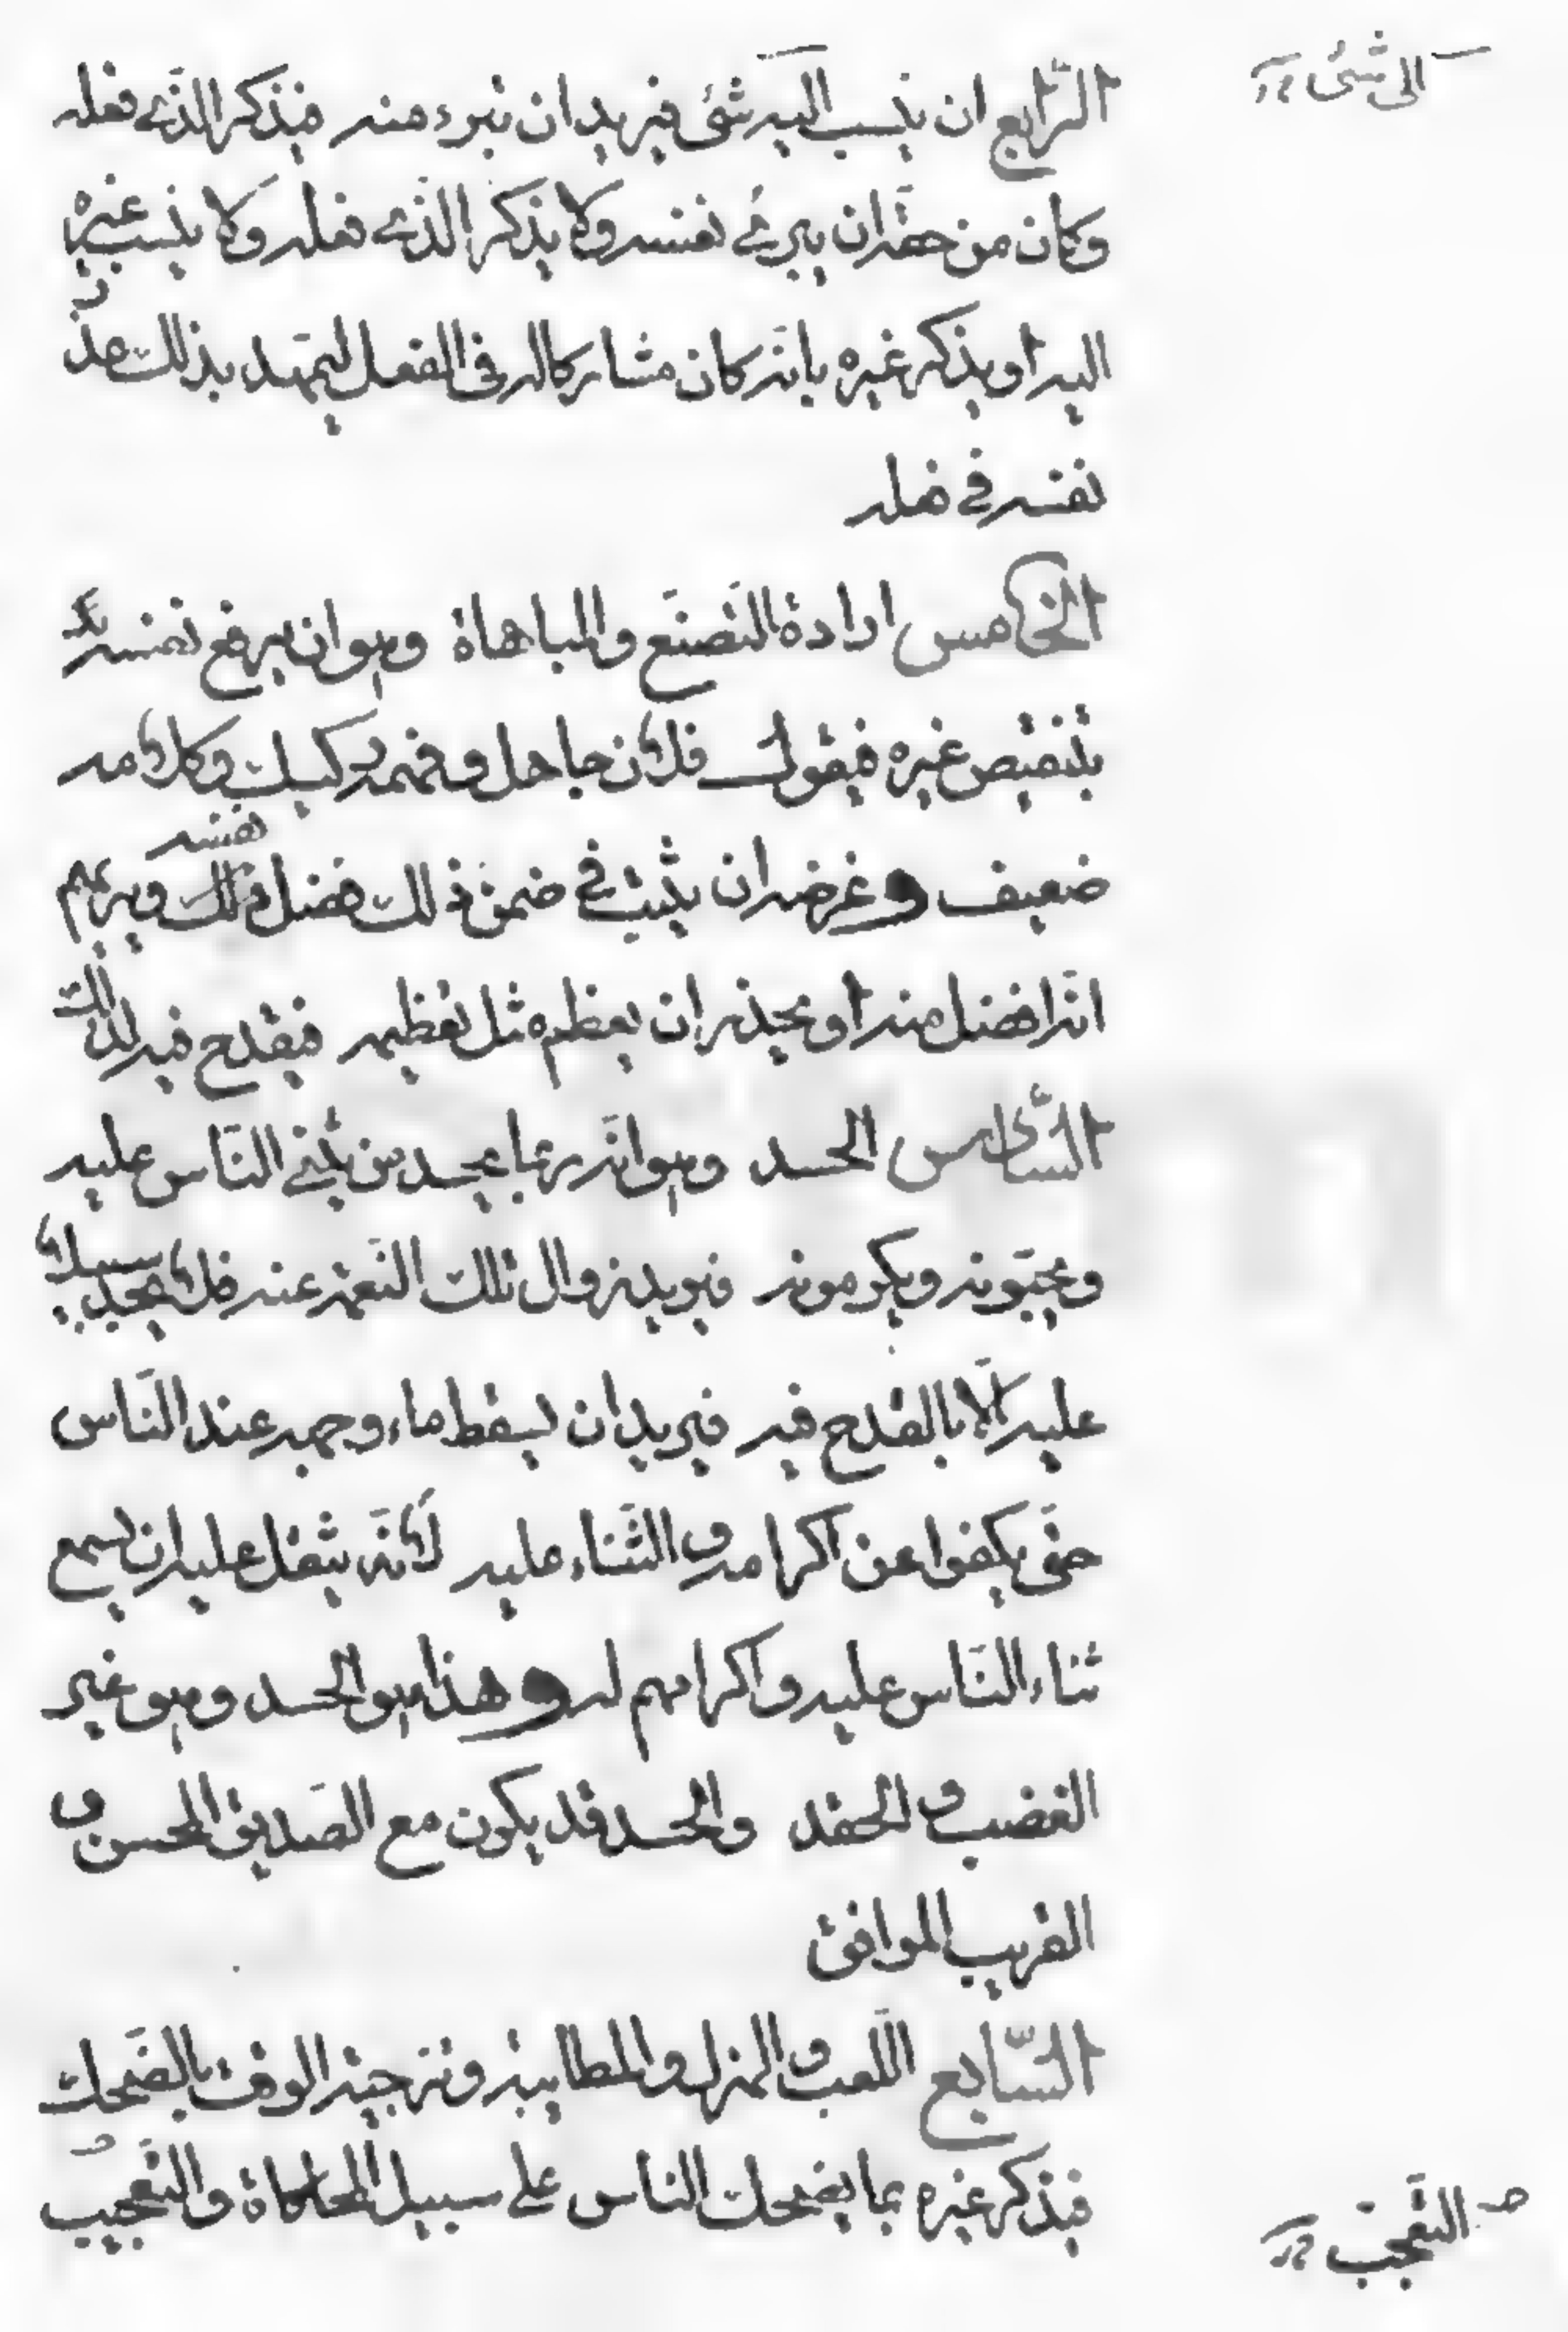 الى شئ
الرّابع ان ينسب اليه شئ فيريد ان يبرء منه فيذكر الذّى فعله
وكان من حقّه ان يبرئ نفسه ولا يذكر الذّى فعله ولا ينسب غيره
اليه او يذكر غيره بانّه كان مشاركا له فى الفعل ليمهّد بذلك عذر
نفسه فى فعله
الخامس ارادة التّصنّع والمباهاة وهو ان يرفع نفسه
بتنقيص غيره فيقول فلان جاهل وفهمه ركيك وكلامه
نفسه
ضعيف وغرضه ان يثبت فى ضمن ذلك فضل ويريهم
انّه افضل منه او يحذر ان يعظم مثل تعظيمه فيقدح فيه لذلك
السّادس الحسد وهو انّه ربما يحسد من يثنى النّاس عليه
ويحبّونه ويكرمونه فيريد زوال تلك النّعمة عنه فلا يجد سبيلا
عليه الّا بالقدح فيه فيريد ان يسقط ماء وجهه عند النّاس
حتّى يكفوا عن اكرامه والثّناء عليه لأنّه يثقل عليه ان يسمع
ثناء النّاس عليه واكرامهم له وهذا هو الحسد وهو غير
الغضب والحقد والحسد قد يكون مع الصّديق المحسن و
القريب الموافق
السّابع اللّعب والهزل والمطايبة وتزجية الوقت بالضّحك
فيذكر غيره بما يضحك الناس على سبيل المحاكاة والتّعجيب
التّعجّب